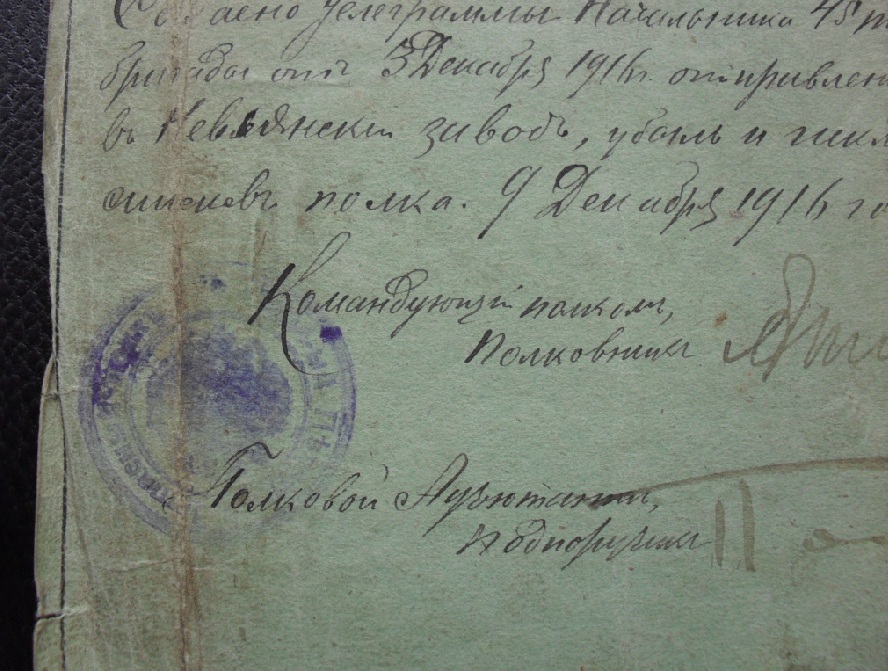 Согласно телеграммы Начальника 45
бригады отъ 3 Декабря 1916 г. отправленъ
въ Невьянский заводъ, убылъ и
списковъ полка. 9 Декабря 1916 го
Командующій полкомъ,
Полковникъ
Полковой Адъютантъ,
Подпоручикъ